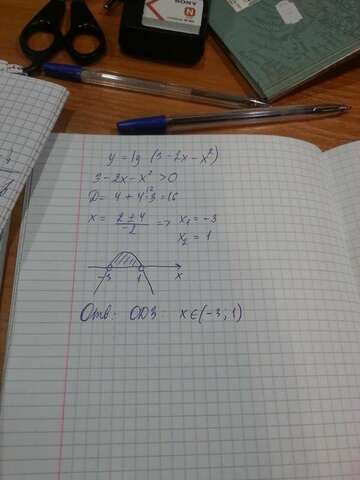 SONY
N
y = lg (3-2x-x²)
3-2x-x²>0
D= 4+4·3=16
12
x= 2±4/-2 => x₁=-3
x₂=1
-3 1 x
Отв: ОДЗ: x∈(-3,1)